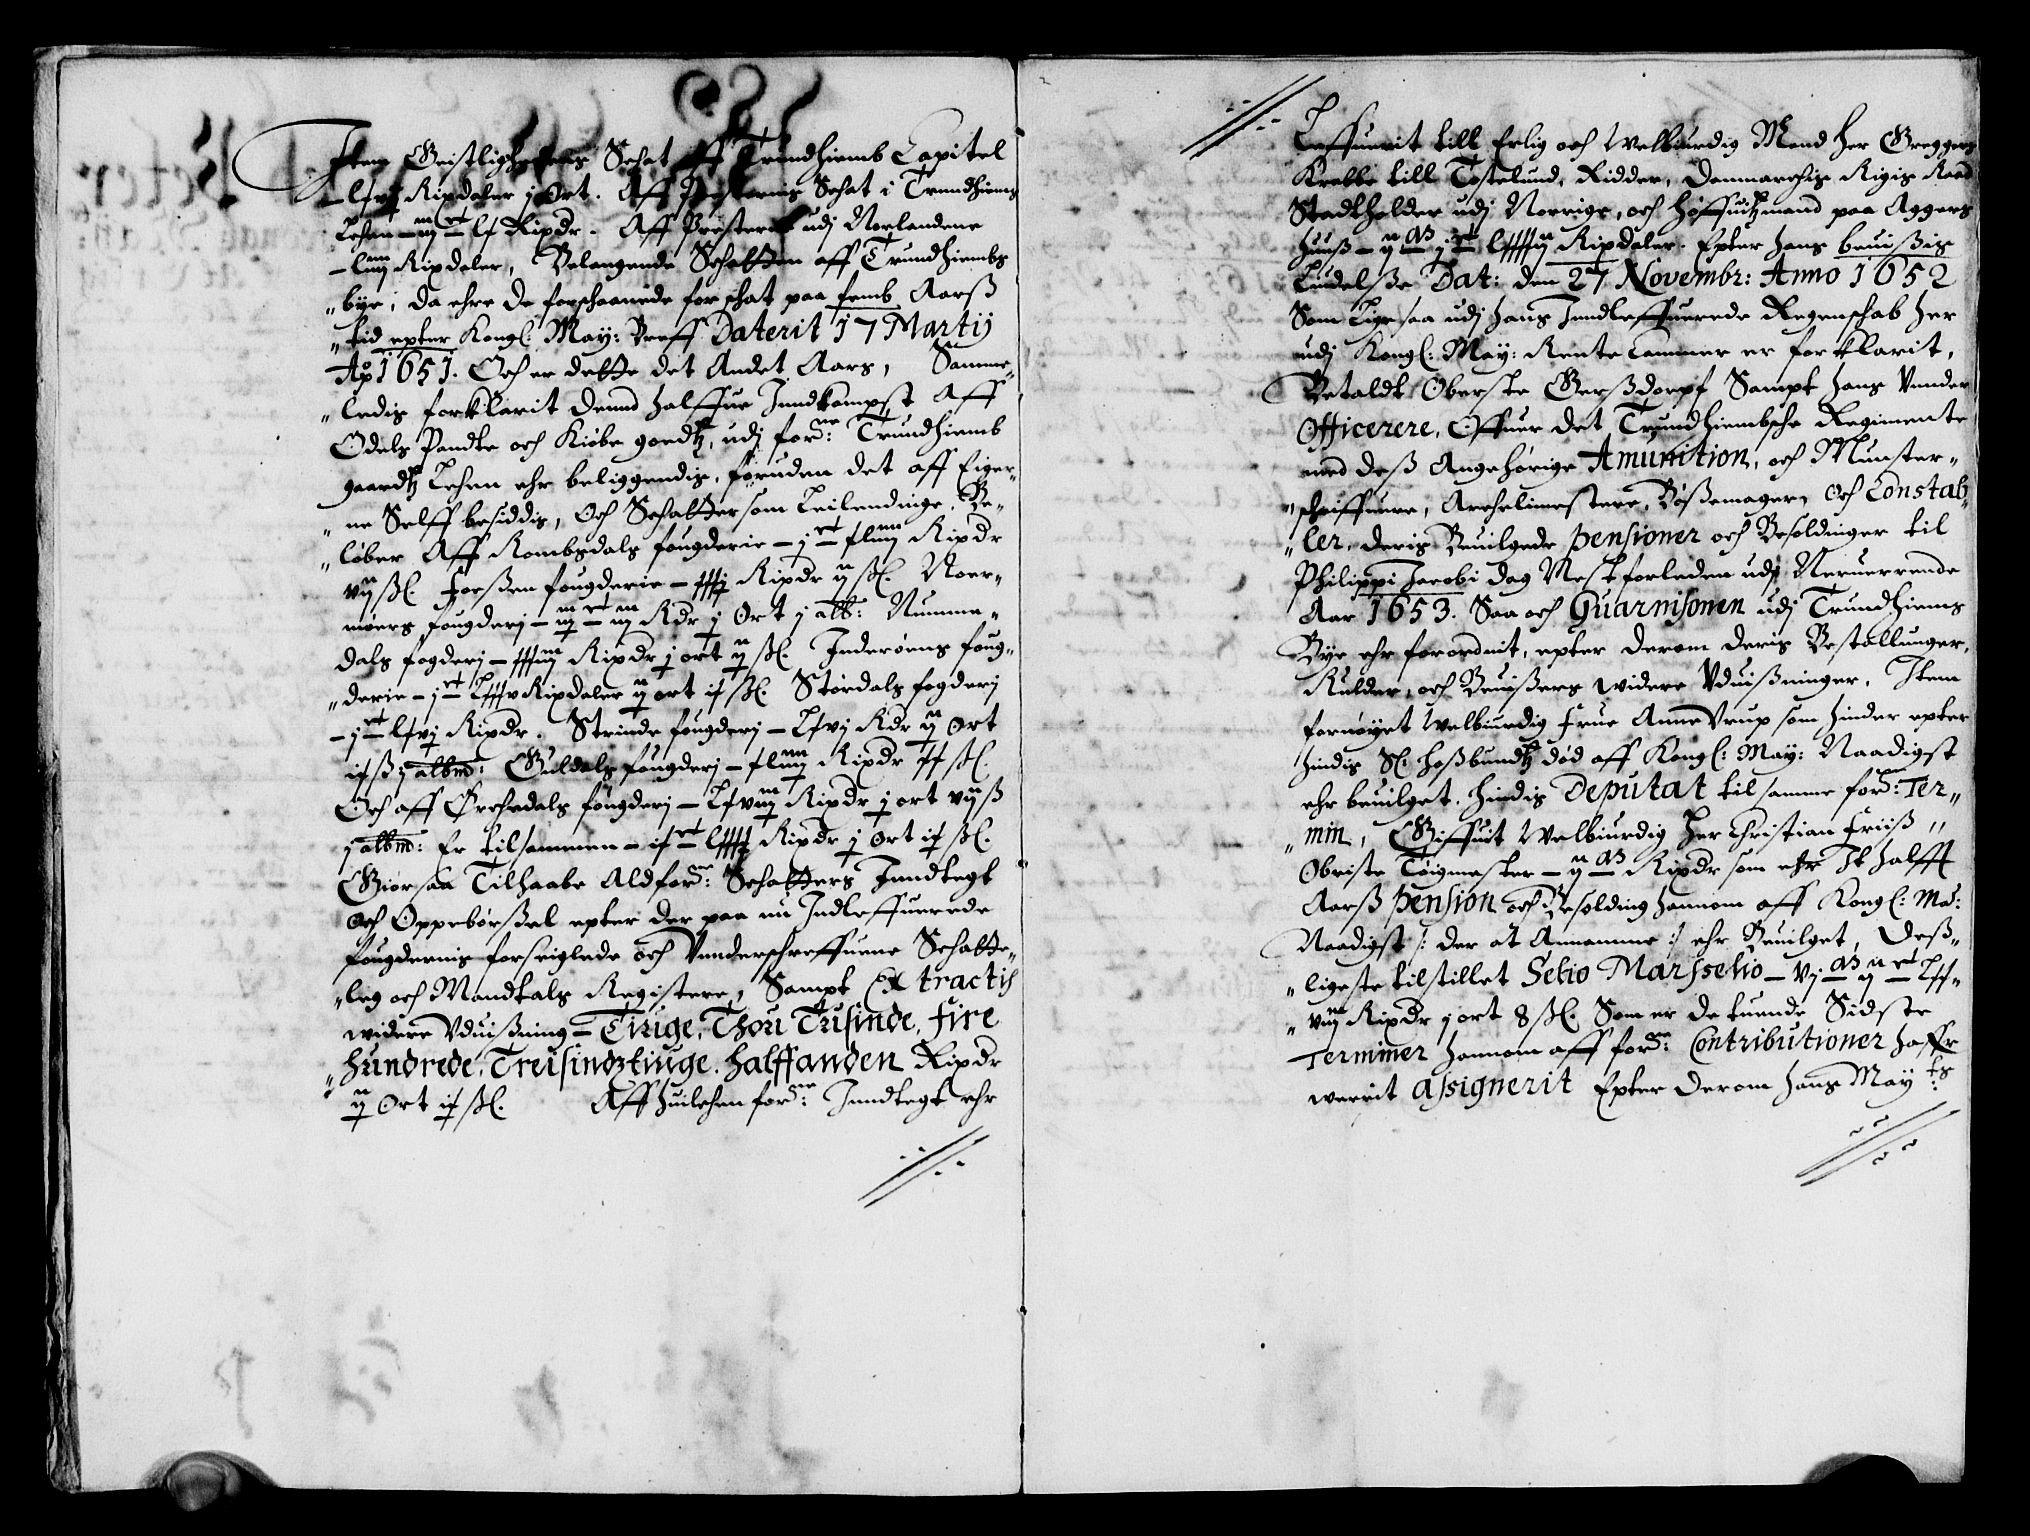 Item Geistlighedens Schat aff Trundhiemb Capitel
Rixdaler j Ort. Aff Presternis Schat i Trundhiems
Lehen Rixdr. Aff Presterne udj Norlandene
Rixdaler, Belangende Schatten aff Trundhiembs
„bÿe, da ehre de forschaanede for schat paa femb Aarß
„tid epter Kongl: May: Breff Daterit 17 Martij
Ao 1651. Och er dette det Andet Aars, Samme„
„ledis forklarit dend halffue Inndkompst Aff
Odels Pandte och Kiøbe goedtz, udj forne: Trundhiemb
gaardtz Lehen ehr beliggendis, foruden det aff Eiger„
„ne Selff besiddis, Och Schatter som Leilendinge, Be„
„løber Aff Rombsdals fougderie Rixdr
vij ßl. Forßen fougderie Rixdr ij ßl. Noer„
møers fougderj Rdr j Ort j alb: Numme„
dals fogderj Rixdr j ort ij ßl. Inderøens foug„
„derie Rixdaler ij ort ßl. Størdals fogderj
Rixdr. Strinde fougderj Rdr ij Ort
ß j alb: Guldals fougderj Rixdr ßl.
Och affØrchedals fougderj Rixdr j ort vij ß
j alb: Er tilsammen Rixdr j Ort ßl.
Giør saa Tilhaabe Ald forne: Schatters Inndtegt
och Oppebørßel epter der paa nu Indleffuerede
fougdernis forseiglede och Underschreffuene Schatte„
„leg och Mandtals Registere, Sampt Extractis
widere Uduißning Tiuge, Thou Tusinde, fire
„hundrede, Treisindztiuge, halffanden Rixdr
ij Ort ßl. Aff huilchen forne: Inndtegt ehr
Leffuerit till Erlig och Welbiurdig Mand Her Greggers
Krabbe till Tostelund, Ridder, Danmarchis Rigis Raad
Stadtholder udj Norrige, och høffuitzmand paa Aggers
huuß Rixdaler. Epter hans beuißis
Liudelße Dat: den 27 Novembr: Anno 1652
Som Ligesaa udj hans Inndleffuerede Regenschab her
udj Kongl: May: Rente Cammer er forklarit,
Betaldt Oberste Gerßdorpf Sampt hans Under
Officerere, Offuer det Trundhiembsche Regimente
med deß Angehørige Amunition, och Munster„
„schriffuere, Archelimestere, Bößemager, och Constab„
„ler, deris Beuilgede pensioner och Besoldinger til
Philippi Jacobi dag Nest forleden udj Neruerrende
Aar 1653. Saa och Guarnisonen udj Trundhiems
Bye ehr forordnit, epter derom deris Bestallunger,
Rulder, och Beuißers widere Uduißninger. Item
fornøyet Welbiurdig Frue Anne Urup som hinder epter
hindis Sl: Hoßbundtz død aff Kongl: May: Naadigst
ehr beuilget, hindis Deputat til samme forne: Ter„
„min, Giffuit Welbiurdig Her Christian Friiß
Obriste Tøigmester Rixdr som ehr It halfft
Aarß pension och Besolding hannom aff Kongl: Ma:
Naadigst /: der at Annamme :/ ehr Beuilget, Deß„
„ligeste tilstillet Selio Marsselio
Rixdr j ort 8 ßl. Som er de tuende Sidste
Terminer hannom aff forne: Contributioner haffr
werrit Assignerit Epter derom hans Mayts